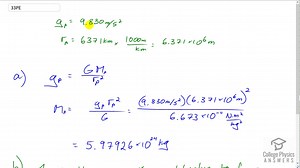 33PE
g_P = 9.830 m/s²
r_P = 6371 km × 1000m/km = 6.371 × 10⁶ m
a) g_P = G M_P / r_P²
M_P = g_P r_P² / G = (9.830 m/s²)(6.371×10⁶ m)² / 6.673 × 10⁻¹¹ N·m²/kg²
= 5.97926 × 10²⁴ kg
College Physics
ANSWERS